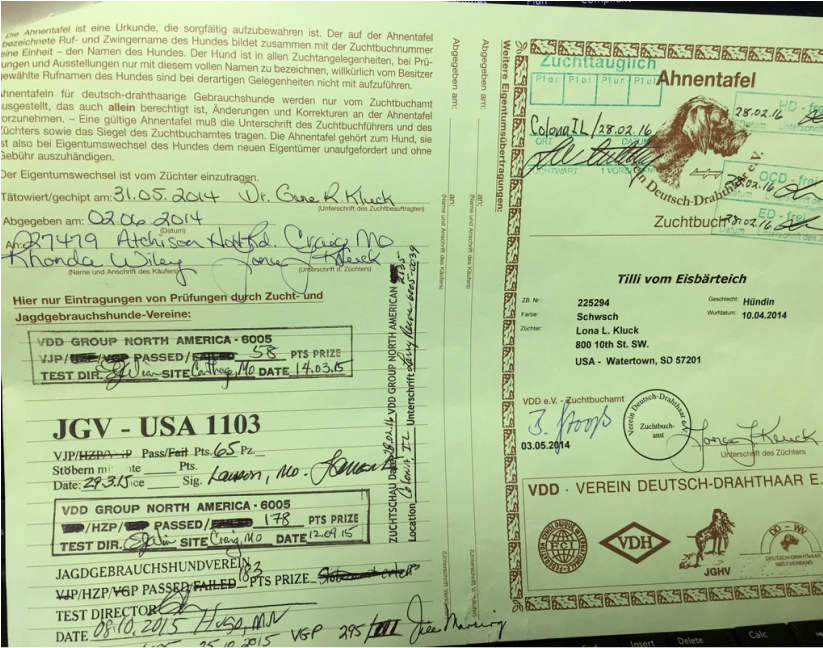 Die Ahnentafel ist eine Urkunde, die sorgfältig aufzubewahren ist. Der auf der Ahnentafel
bezeichnete Ruf- und Zwingername des Hundes bildet zusammen mit der Zuchtbuchnummer
eine Einheit – den Namen des Hundes. Der Hund ist in allen Zuchtangelegenheiten, bei Prü-
ungen und Ausstellungen nur mit diesem vollen Namen zu bezeichnen, willkürlich vom Besitzer
gewählte Rufnamen des Hundes sind bei derartigen Gelegenheiten nicht mit aufzuführen.
Ahnentafeln für deutsch-drahthaarige Gebrauchshunde werden nur vom Zuchtbuchamt
ausgestellt, das auch allein berechtigt ist, Änderungen und Korrekturen an der Ahnentafel
vorzunehmen. – Eine gültige Ahnentafel muß die Unterschrift des Zuchtbuchführers und des
Züchters sowie das Siegel des Zuchtbuchamtes tragen. Die Ahnentafel gehört zum Hund, sie
ist also bei Eigentumswechsel des Hundes dem neuen Eigentümer unaufgefordert und ohne
Gebühr auszuhändigen.
Der Eigentumswechsel ist vom Züchter einzutragen.
Tätowiert/gechipt am: 31.05.2014 Dr. Gene R Kluck
(Unterschrift des Zuchtbeauftragten)
Abgegeben am: 02.06.2014
(Datum)
An: 27479 Atchison Craig, MO
Rhonda Wiley Lona J Kluck
(Name und Anschrift des Käufers) (Unterschrift d. Züchters)
Hier nur Eintragungen von Prüfungen durch Zucht- und
Jagdgebrauchshunde-Vereine:
VDD GROUP NORTH AMERICA - 6005
VJP/HZP/VGP PASSED/FAILED 58 PTS PRIZE
TEST DIR. SITE Carthage, Mo DATE 14.03.15
JGV - USA 1103
VJP/HZP/VGP Pass/Fail Pts. 65 Pz.
Stöbern Pts.
Date: 29.3.15 Sig. Lawson, Mo.
VDD GROUP NORTH AMERICA - 6005
/HZP/ PASSED/ 178 PTS PRIZE
TEST DIR. SITE Craig, Mo DATE 12.09.15
JAGDGEBRAUCHSHUNDVEREIN
VJP/HZP/VGP PASSED/FAILED 183 PTS PRIZE
TEST DIRECTOR
DATE 08.10.2015 Hugo, MN
25.10.2015 VGP 295/III
ZUCHTSCHAU Date 28.02.16 VDD GROUP NORTH AMERICA
Location Colona IL Unterschrift
Abgegeben am:
an:
(Name und Anschrift des Käufers)
Abgegeben am:
an:
(Name und Anschrift des Käufers)
Weitere Eigentumsübertragungen:
Zuchttauglich
Colona IL / 28.02.16
ORT DATUM
ZUCHTWART
Ahnentafel
HD - frei
28.02.16
Datum Unterschrift
OCD - frei
28.02.16
ED - frei
28.02.16
Datum
Verein Deutsch-Drahthaar e.V.
Zuchtbuch
Tilli vom Eisbärteich
ZB. Nr: 225294 Geschlecht: Hündin
Farbe: Schwsch Wurfdatum: 10.04.2014
Züchter: Lona L. Kluck
800 10th St. SW.
USA - Watertown, SD 57201
VDD e.V. - Zuchtbuchamt
03.05.2014
Verein Deutsch-Drahthaar
Zuchtbuch-
amt
Lona J Kluck
Unterschrift des Züchters
VDD · VEREIN DEUTSCH-DRAHTHAAR E.
FCI
VDH
JGHV
DD - WV
DEUTSCH-DRAHTHAAR
WELTVERBAND
Insert
Delete
Calc